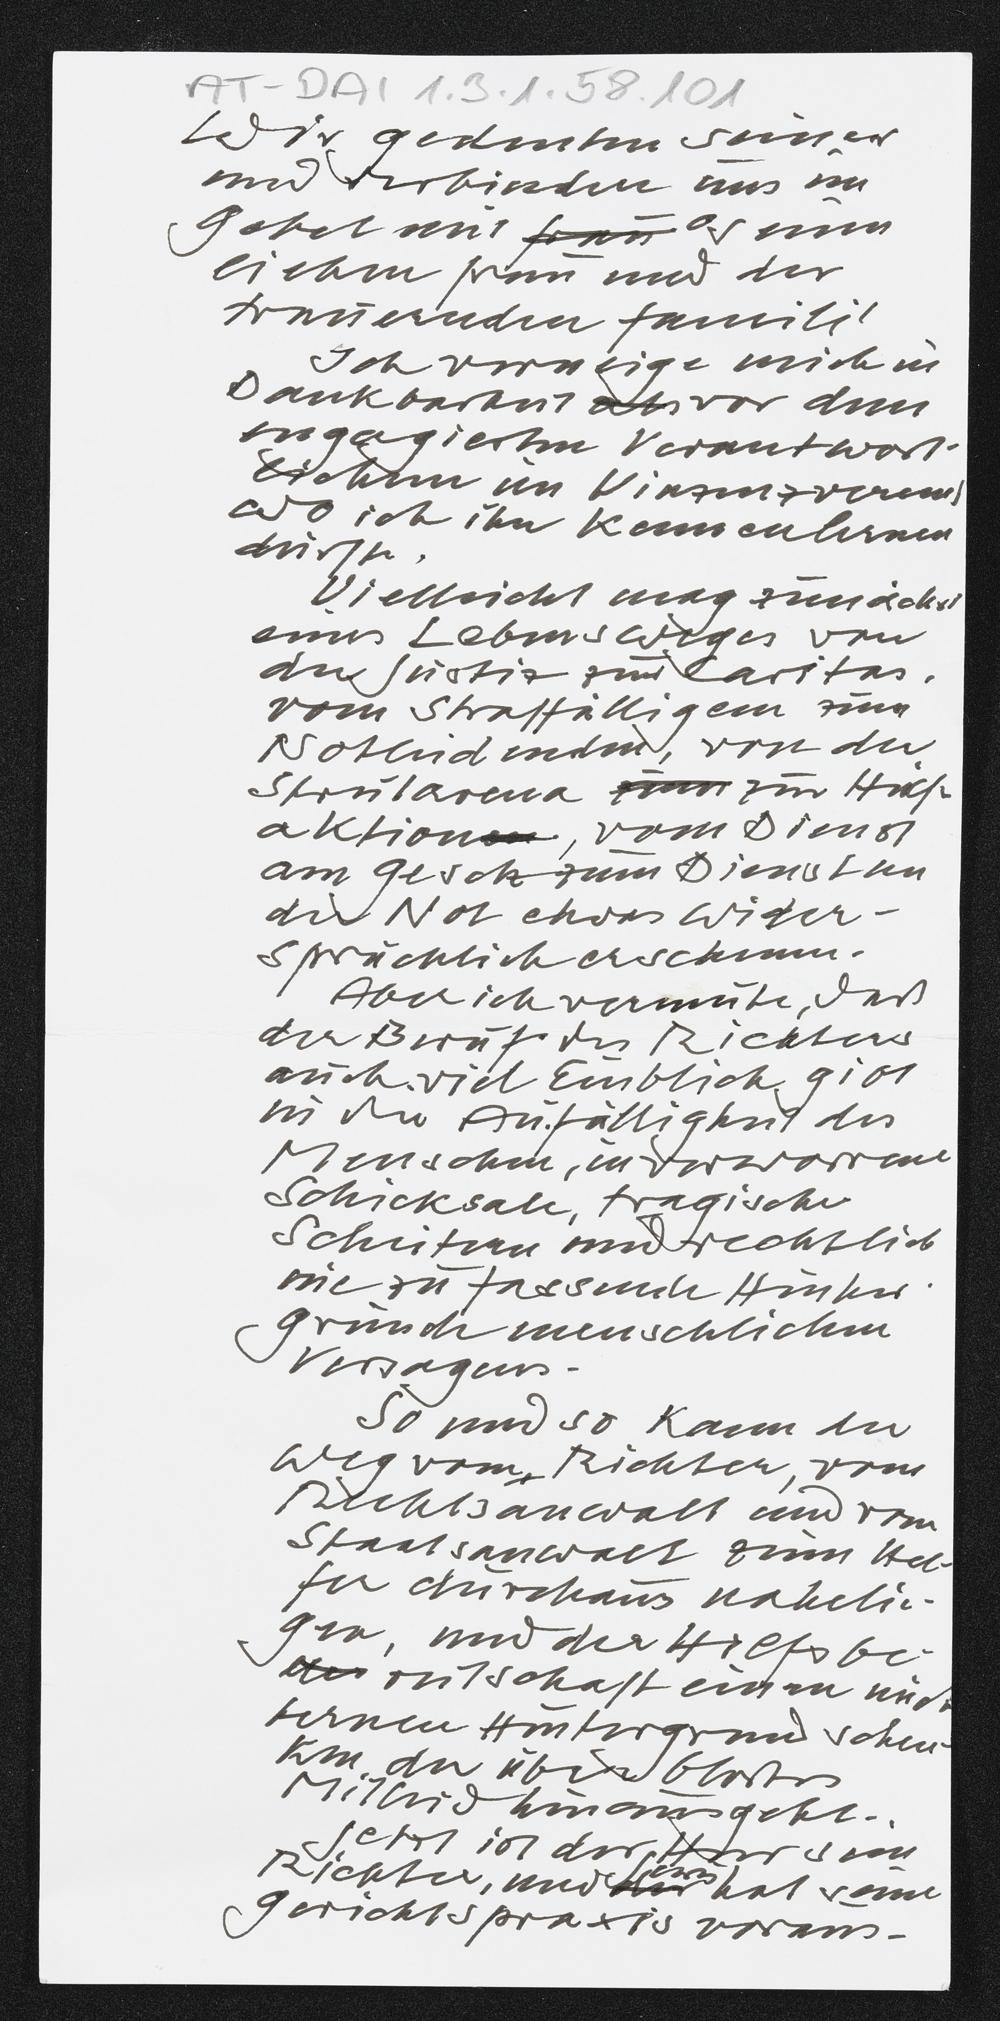 AT-DAI 1.3.1.58.101
Wir gedenken seiner
und verbinden uns im
Gebet mit seiner
lieben Frau und der
trauernden Familie
Ich verneige mich in
Dankbarkeit vor dem
engagierten Verantwort-
lichen im Vinzenzverein
wo ich ihn kennenlernen
durfte.
Vielleicht mag zunächst
eines Lebensweges von
der Justiz zur Caritas,
vom Straffälligen zum
Notleidenden, von der
Streitarena zur Hilfs-
aktion, vom Dienst
am Gesetz zum Dienst an
der Not etwas wider-
sprüchlich erscheinen.
Aber ich vermute, daß
der Beruf des Richters
auch viel Einblick gibt
in die Anfälligkeit des
Menschen, in verworrene
Schicksale, tragische
Scheitern und rechtlich
nie zu fassende Hinter-
gründe menschlichen
Versagens.
So und so kann der
Weg vom Richter, vom
Rechtsanwalt und vom
Staatsanwalt zum Hel-
fer durchaus nahelie-
gen, und der Hilfsbe-
reitschaft einen nüch-
ternen Hintergrund schen-
ken, der über bloßes
Mitleid hinausgeht.
Jetzt ist der Herr sein
Richter, und hat seine
Gerichtspraxis voraus-